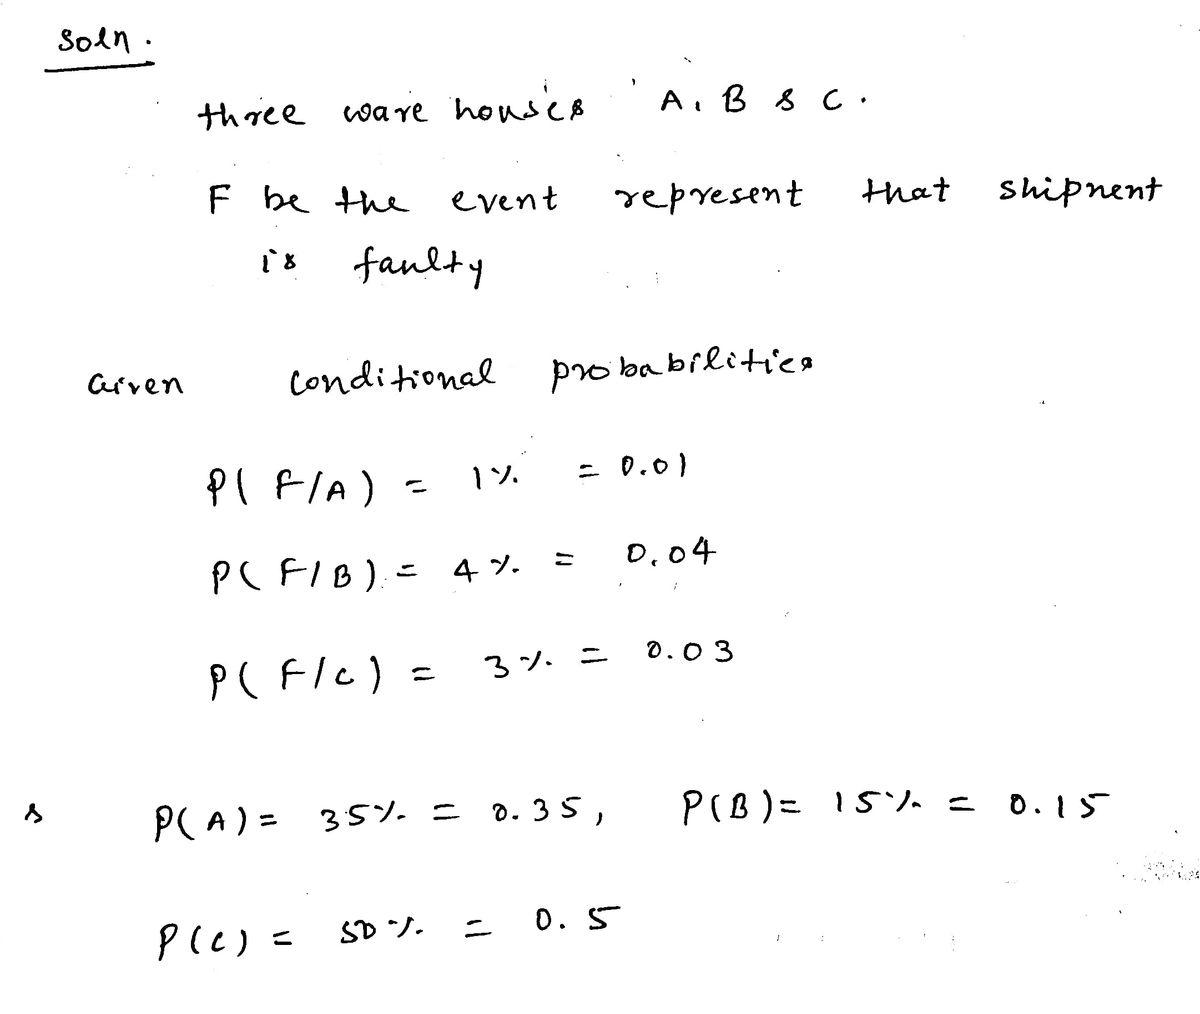 Soln.
three ware houses A, B & C.
F be the event represent that shipnent
is faulty
Given conditional probabilities
P( F/A) = 1% = 0.01
P( F/B) = 4% = 0.04
P( F/C) = 3% = 0.03
& P(A) = 35% = 0.35, P(B) = 15% = 0.15
P(C) = 50% = 0.5